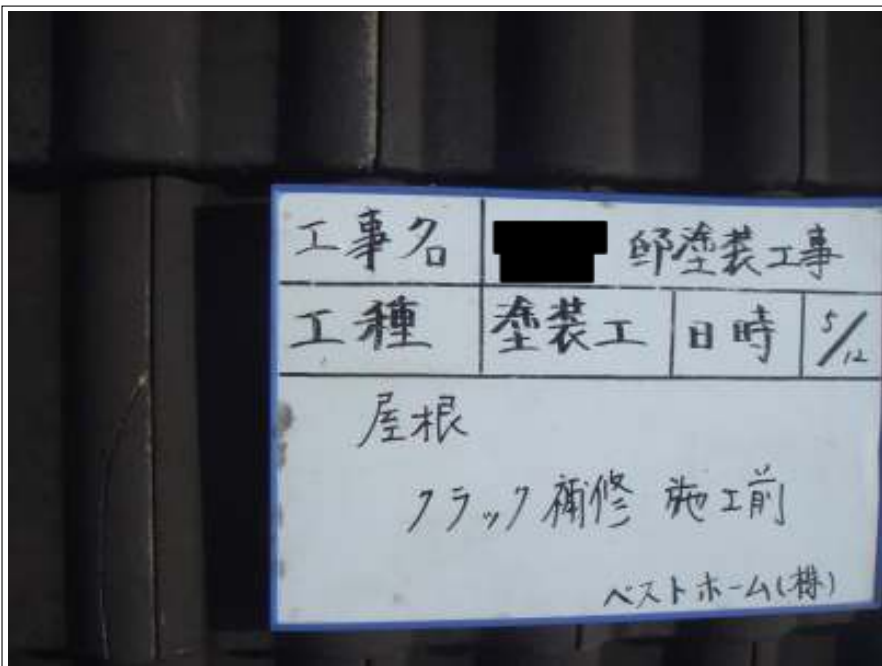 工事名 邸塗装工事
工種 塗装工 日時 5/12
屋根
クラック補修 施工前
ベストホーム(株)